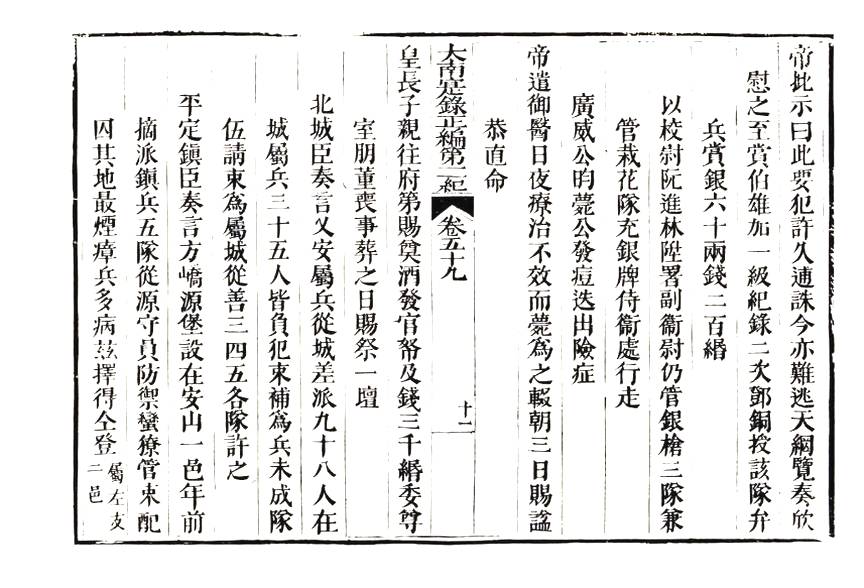 帝批示曰此要犯許久逋誅今亦難逃天綱覽奏欣
慰之至賞伯雄加一級紀錄二次鄧銅授該隊弁
兵賞銀六十兩錢二百緡
以校尉阮進林陞署副衞尉仍管銀槍三隊兼
管栽花隊充銀牌侍衞處行走
廣威公昀薨公發痘迭出險症
帝遣御醫日夜療治不效而薨為之輟朝三日賜諡
恭直命
大南寔錄正編第二紀 卷五十九 十二
皇長子親往府第賜奠酒發官帑及錢三千緡委尊
室朋董喪事葬之日賜祭一壇
北城臣奏言乂安屬兵從城差派九十八人在
城屬兵三十五人皆負犯束補為兵未成隊
伍請束為屬城從善三四五各隊許之
平定鎮臣奏言方嶠源堡設在安山一邑年前
摘派鎮兵五隊從源守員防禦蠻獠管束配
因其地最煙瘴兵多病茲擇得仝登屬左支二邑